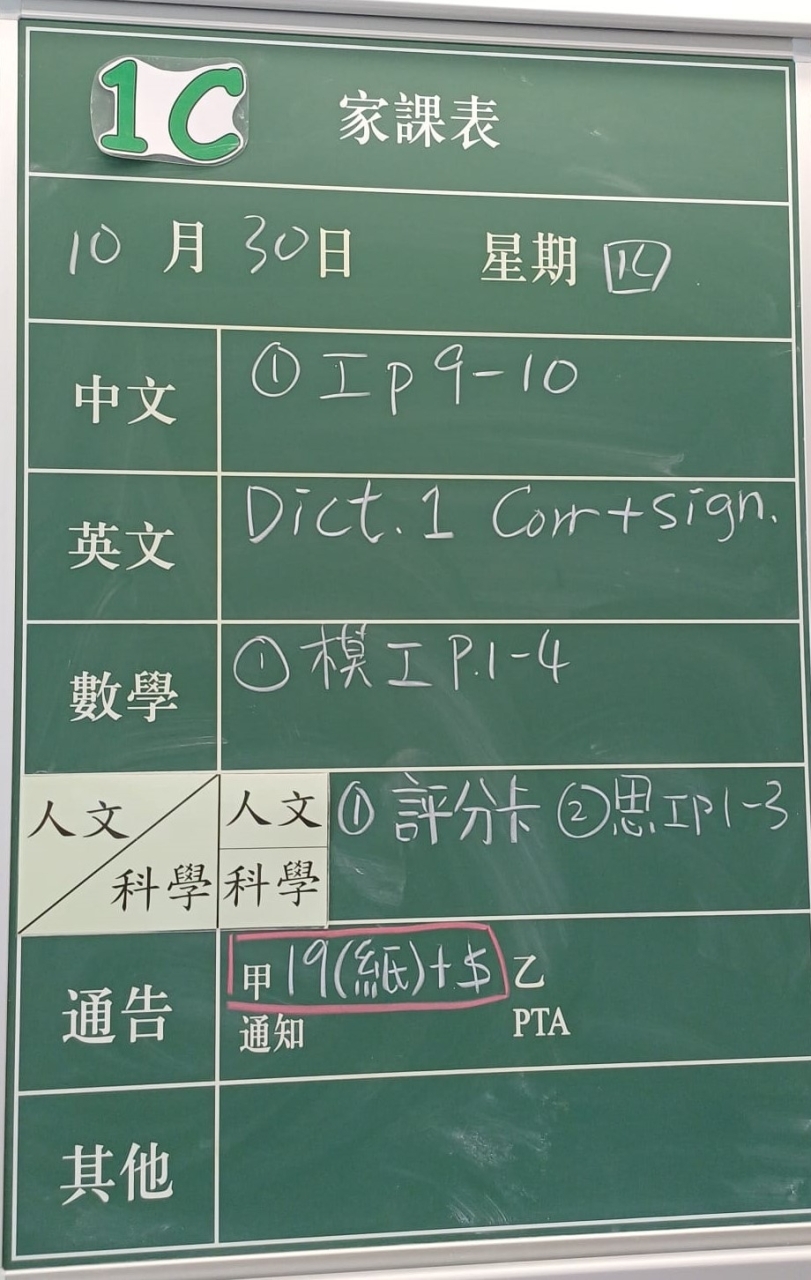 1C 家課表
10月30日 星期四
中文 ①工p9-10
英文 Dict.1 Corr+sign.
數學 ①模工P.1-4
人文/科學 人文 ①評分卡 ②思工P1-3
科學
通告 甲19(紙)+$ 乙
通知 PTA
其他